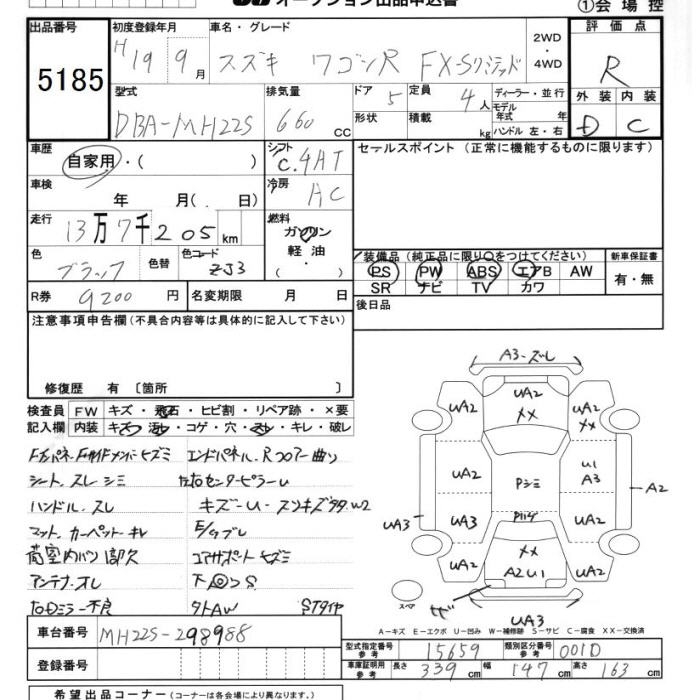 オークション出品申込書
①会場控
出品番号 5185
初度登録年月 H19 9月
車名・グレード スズキ ワゴンR FX-Sリミテッド
2WD・4WD
評価点 R
外装 D 内装 C
型式 DBA-MH22S
排気量 660 CC
ドア 5
定員 4人
形状
積載 kg
ディーラー・並行
モデル年式 年
ハンドル 左・右
車歴 自家用・( )
シフト C.4AT
セールスポイント (正常に機能するものに限ります)
車検 年 月( . 日)
冷房 AC
走行 13万7千205km
燃料 ガソリン 軽油・( )
色 ブラック 色替 色コード ZJ3
装備品 (純正品に限り○をつけてください)
PS PW ABS エアB AW
SR ナビ TV カワ
新車保証書 有・無
R券 9200円 名変期限 月 日
後日品
注意事項申告欄 (不具合内容等は具体的に記入して下さい)
修復歴 有 [箇所 ]
検査員記入欄
FW キズ・飛石・ヒビ割・リペア跡・×要
内装 キズ・汚レ・コゲ・穴・スレ・キレ・破レ
エンドパネル、Rフロアー曲り
シート、スレ シミ 左右センターピラーU
ハンドル、スレ キズ-U-スリキズ多々 W2
マット、カーペット キレ
荷室内バン部欠 コアサポートヒズミ
アンテナ、オレ 下回りS
右Dミラー不良 外AW STタイヤ
A3-ズレ
UA2 UA2 ××  UA2 ××
UA2 Pシミ U1 A3
A2
UA3 UA3 UA2
UA2 ×× A2U1 UA2
スペア
UA3
A-キズ E-エクボ U-凹み W-補修跡 S-サビ C-腐食 XX-交換済
車台番号 MH22S-298988
登録番号
型式指定番号 参考 15659 類別区分番号 参考 001D
車庫証明用 参考 長さ 339cm 幅 147cm 高さ 163cm
希望出品コーナー (コーナーは各会場により異なります。)